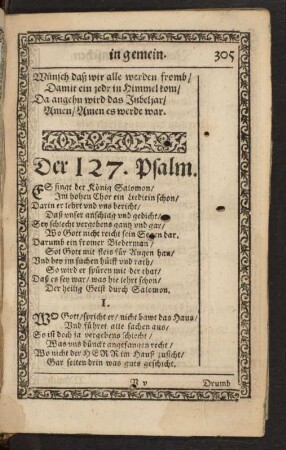 in gemein. 305
Wünsch daß wir alle werden fromb/
Damit ein jedr in Himmel kom/
Da angehn wird das Jubeljar/
Amen/ Amen es werde war.
Der 127. Psalm.
ES singt der König Salomon/
Im hohen Chor ein Liedlein schon/
Darin er lehrt vnd vns bericht/
Daß vnser anschlag vnd gedicht/
Sey schlecht vergebens gantz vnd gar/
Wo Gott nicht reicht sein Segen dar.
Darumb ein fromer Biederman/
Sol Gott mit fleis für Augen han/
Vnd bey im suchen hülff vnd rath/
So wird er spüren mit der that/
Daß es sey war/ was hie lehrt schon/
Der heilig Geist durch Salomon.
I.
WO Gott/ spricht er/ nicht bawt das Haus/
Vnd führet alle sachen aus/
So ist doch ja vergebens schlecht/
Was vns dünckt angefangen recht/
Wo nicht der HERR im Hauß zusicht/
Gar selten drin was guts geschicht.
V v Drumb